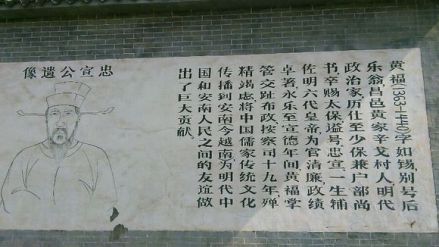 黄福(1363-1440)字如锡别号后
乐翁昌邑黄家辛戈村人明代
政治家历仕至少保兼户部尚
书卒赐太保谥号忠宣一生辅
佐明六代皇帝为官清廉政绩
卓著永乐至宣德年间黄福掌
管交趾布政按察司十九年殚
精竭虑将中国儒家传统文化
传播到安南今越南为明代中
国和安南人民之间的友谊做
出了巨大贡献。
忠宣公遗像